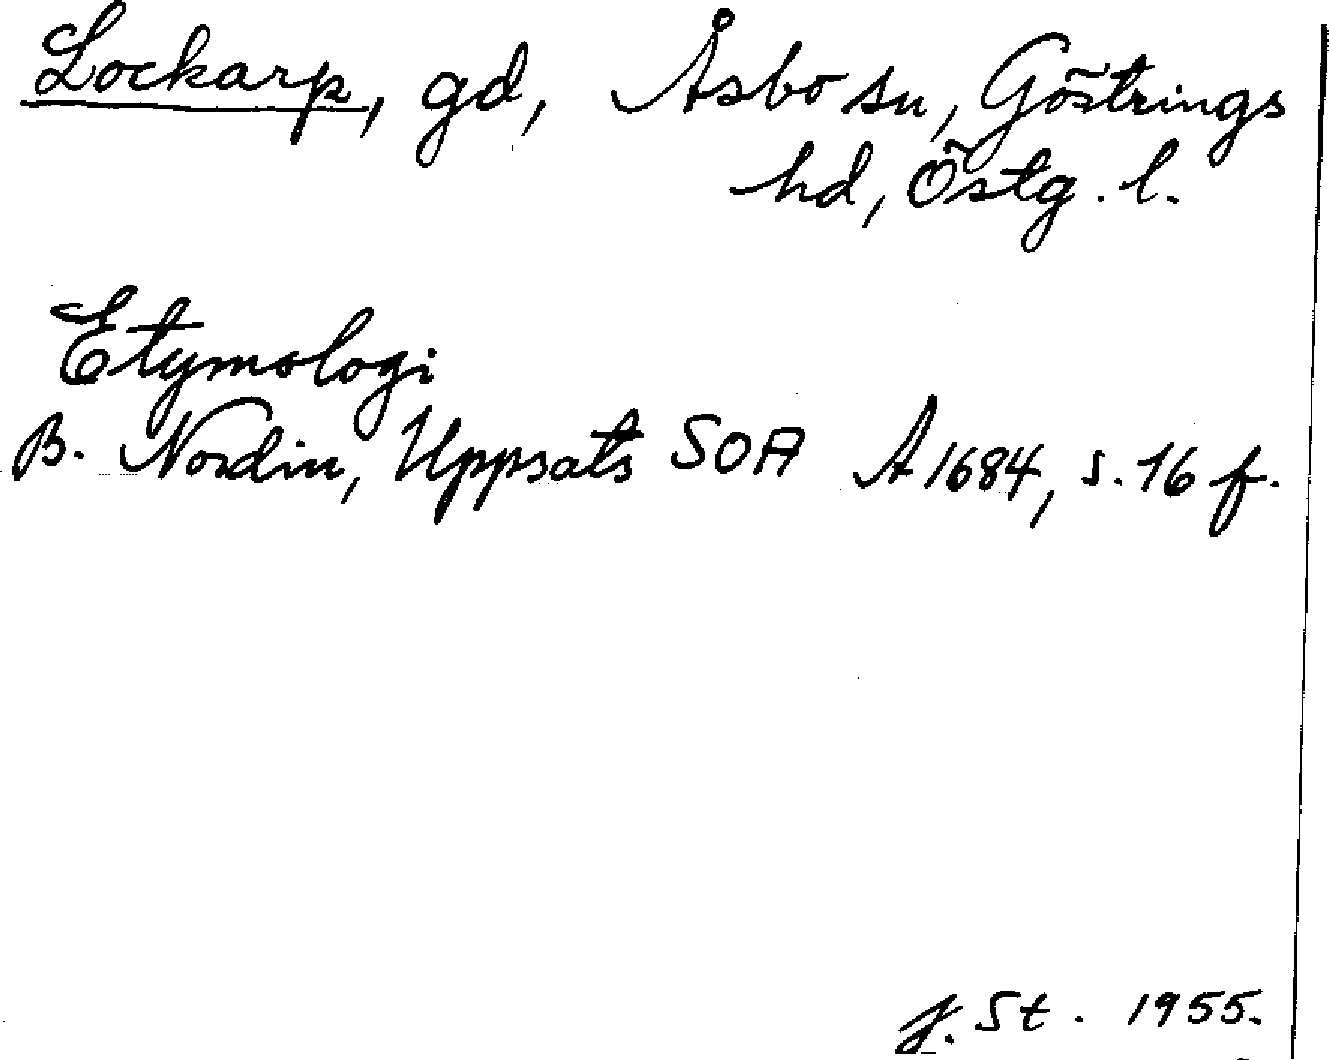 Lockarp, gd, Åsbo sn, Göstrings
hd, Östg. l.
Etymologi
B. Nordin, Uppsats SOA A 1684, s. 16 f.
J. St. 1955.